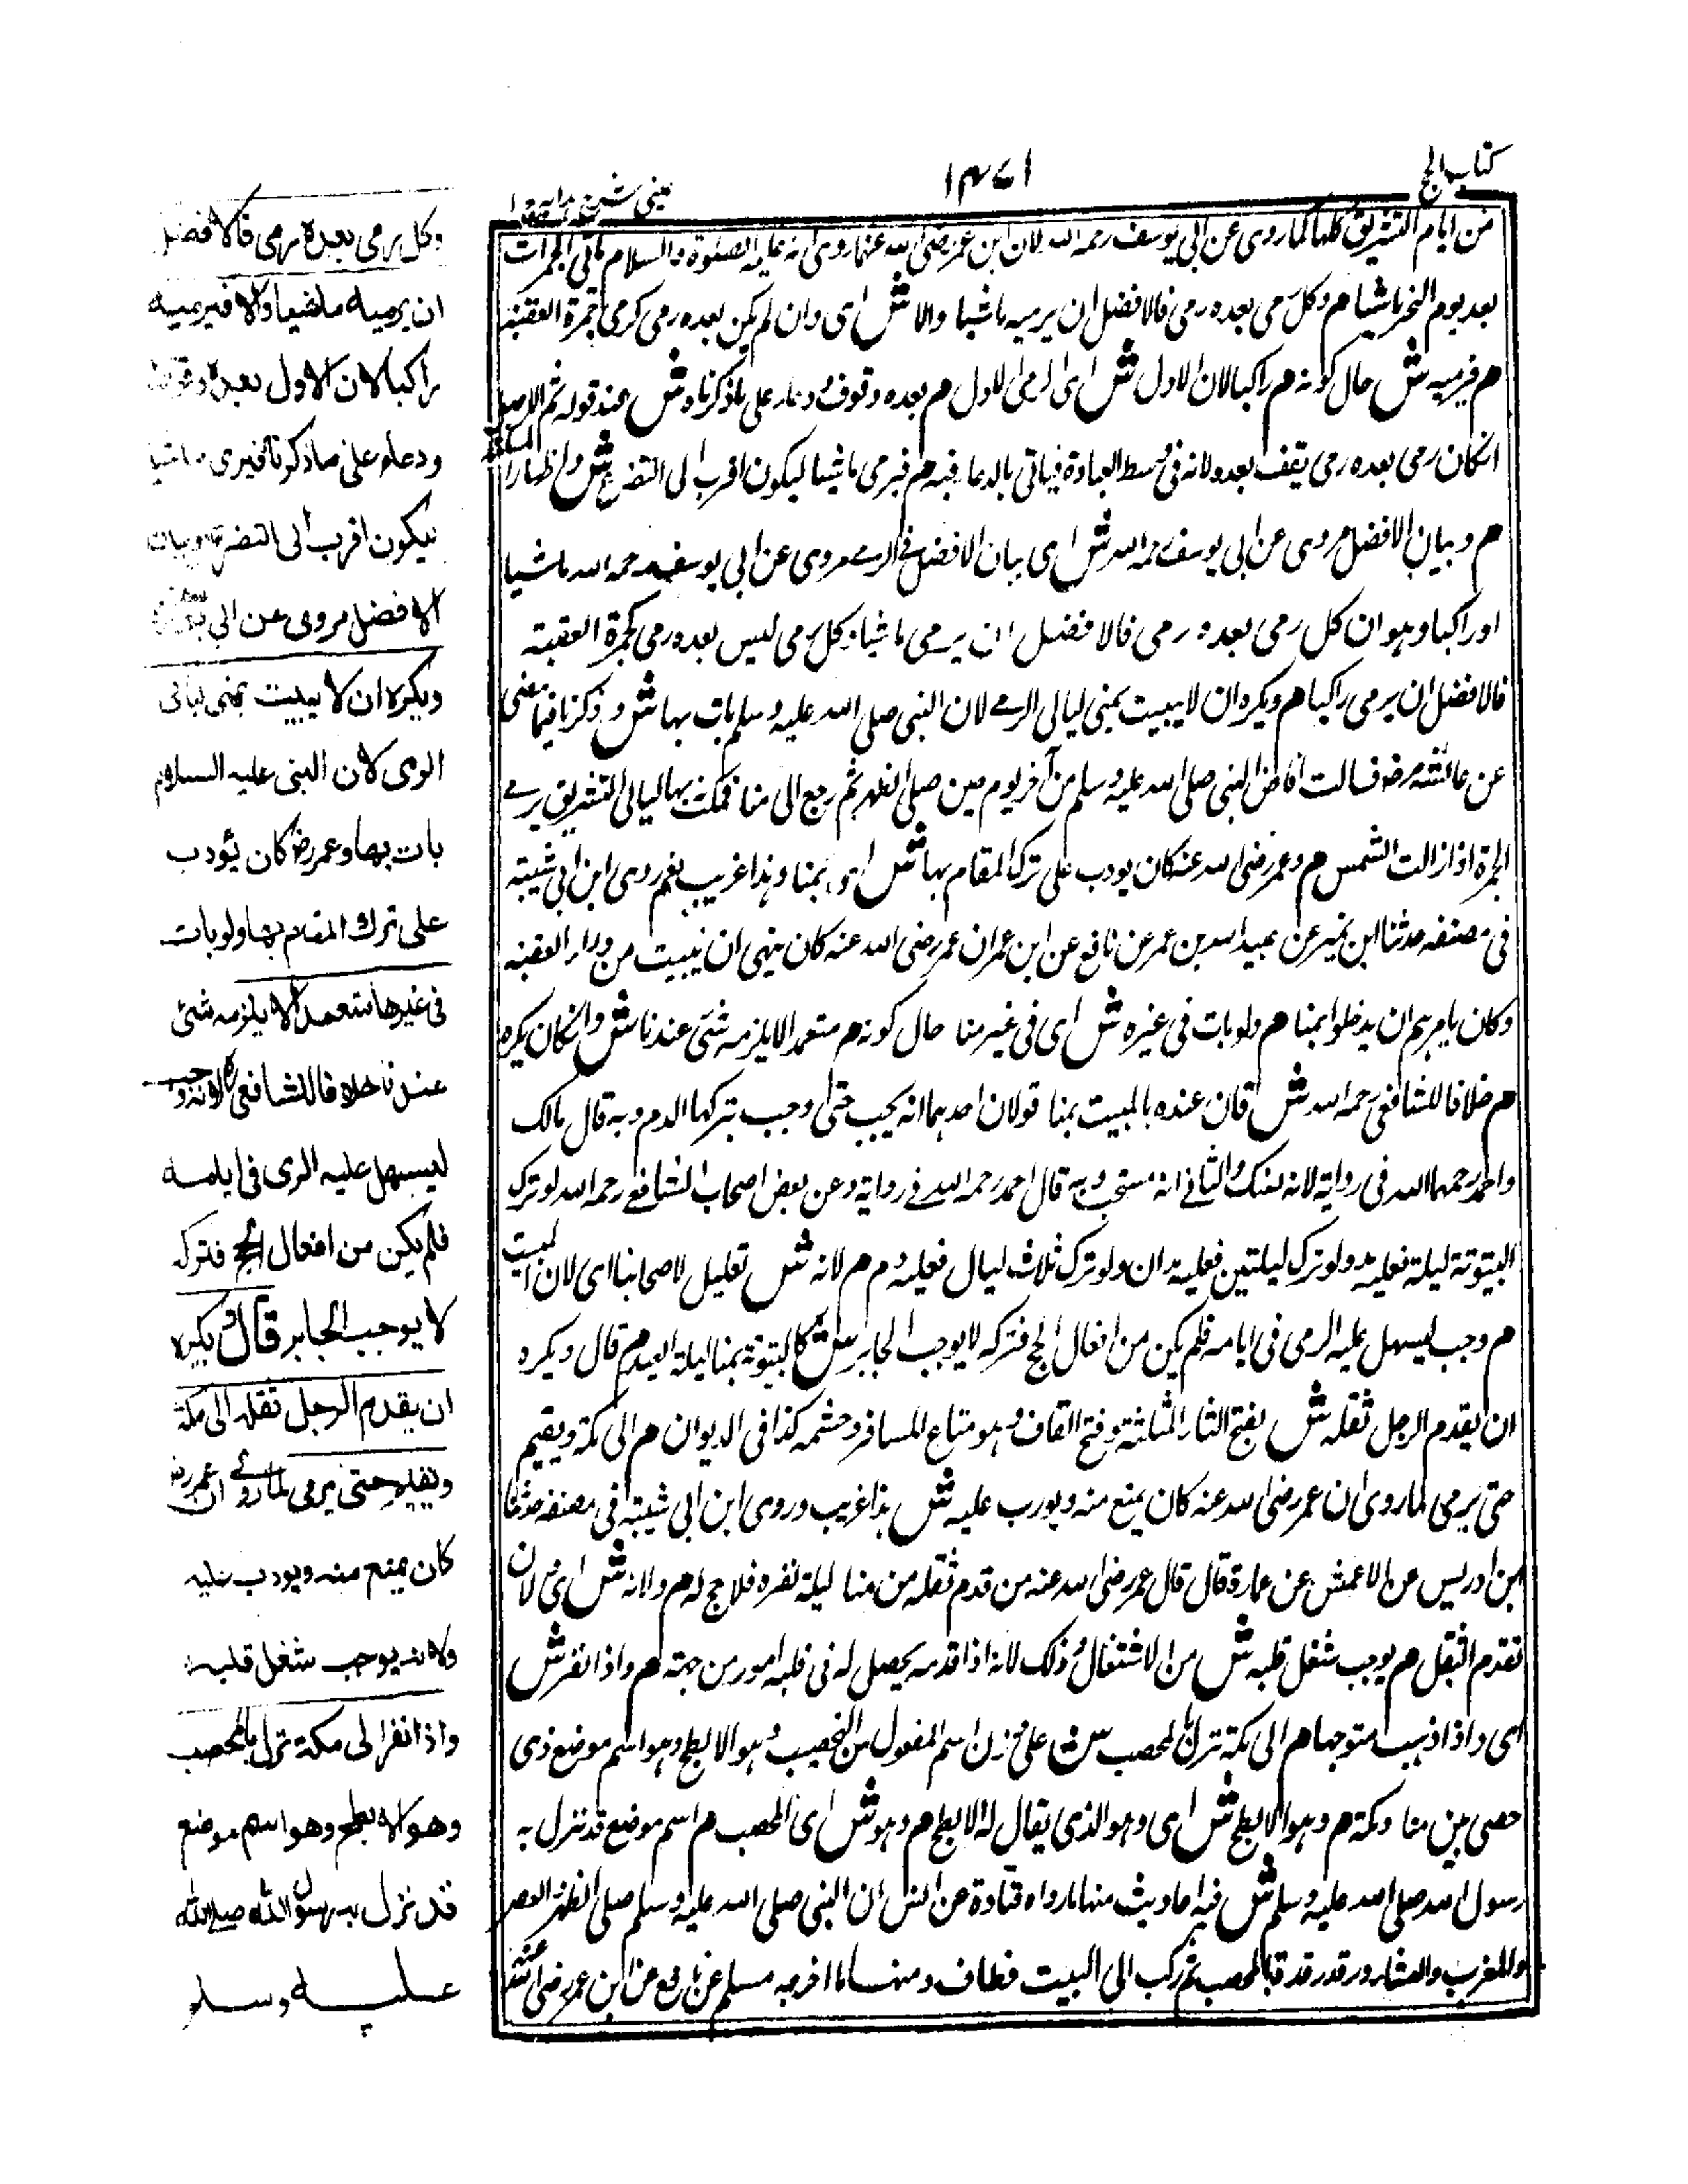 كتاب الحج
١٤٧١
عينى شرح هدايه ج ١
من ايام التشريق كلها كما روى عن ابى يوسف رحمه الله لان ابن عمر رضى الله عنهما روى انه عليه الصلوة والسلام ياتى الجمرات
بعد يوم النحر ماشيا م وكل رمى بعده رمى فالافضل ان يرميه ماشيا والا ش اى وان لم يكن بعده رمى كرمى جمرة العقبة
م فيرميه ش حال كونه م راكبا لان الاول ش اى الرمى الاول م بعده وقوف ودعاء على ما ذكرنا ش عند قوله ثم الاصل
انكان رمى بعده رمى يقف بعده لانه فى وسط العبادة فياتى بالدعاء فيه م فيرمى ماشيا ليكون اقرب الى التضرع ش واظهارا
م وبيان الافضل مروى عن ابى يوسف رحمه الله ش اى بيان الافضل فى الرمى مروى عن ابى يوسف رحمه الله ماشيا
او راكبا وهو ان كل رمى بعده رمى فالافضل ان يرمى ماشيا وكل رمى ليس بعده رمى كجمرة العقبة
فالافضل ان يرمى راكبا م ويكره ان لا يبيت بمنى ليالى الرمى لان النبى صلى الله عليه وسلم بات بها ش وذكرنا فيما مضى
عن عائشة رض قالت افاض النبى صلى الله عليه وسلم من آخر يوم حين صلى الظهر ثم رجع الى منا فمكث بها ليالى التشريق يرمى
الجمرة اذا زالت الشمس م وعمر رضى الله عنه كان يودب على ترك المقام بها ش اى بمنا وهذا غريب نعم روى ابن ابى شيبة
فى مصنفه حدثنا ابن نمير عن عبيد الله بن عمر عن نافع عن ابن عمر ان عمر رضى الله عنه كان ينهى ان يبيت من وراء العقبة
وكان يامرهم ان يدخلوا بمنا م ولو بات فى غيره ش اى فى غير منا حال كونه م متعمدا لا يلزمه شئ عندنا ش وانكان يكره
م خلافا للشافعى رحمه الله ش فان عنده بالمبيت بمنا قولان احدهما انه يجب حتى وجب بتركها الدم وبه قال مالك
واحمد رحمهما الله فى رواية لانه نسك والثانى انه مستحب وبه قال احمد رحمه الله فى رواية وعن بعض اصحاب الشافعى رحمه الله لو ترك
البيتوتة ليلة فعليه مد ولو ترك ليلتين فعليه مدان ولو ترك ثلاث ليال فعليه دم م لانه ش تعليل لاصحابنا اى لان المبيت
م وجب ليسهل عليه الرمى فى ايامه فلم يكن من افعال الحج فتركه لا يوجب الجابر ش كالبيتوتة بمنا ليلة العيد م قال ويكره
ان يقدم الرجل ثقله ش بفتح الثاء المثلثة وفتح القاف وهو متاع المسافر وحشمه كذا فى الديوان م الى مكة ويقيم
حتى يرمى لما روى ان عمر رضى الله عنه كان يمنع منه ويودب عليه ش هذا غريب وروى ابن ابى شيبة فى مصنفه حدثنا
ابن ادريس عن الاعمش عن عمارة قال قال عمر رضى الله عنه من قدم ثقله من منا ليلة نفره فلا حج له م ولانه ش اى لان
تقدم الثقل م يوجب شغل قلبه ش من الاشتغال وذلك لانه اذا قدمه يحصل له فى قلبه امور من جهته م واذا نفر ش
اى واذا ذهب متوجها م الى مكة نزل بالمحصب ش على وزن اسم المفعول من التحصيب وهو الابطح وهو اسم موضع ذى
حصى بين منا ومكة م وهو الابطح ش اى وهو الذى يقال له الابطح م وهو ش اى المحصب م اسم موضع قد نزل به
رسول الله صلى الله عليه وسلم ش فيه احاديث منها ما رواه قتادة عن انس ان النبى صلى الله عليه وسلم صلى الظهر والعصر
والمغرب والعشاء ورقد رقدة بالمحصب ثم ركب الى البيت فطاف ومنها ما اخرجه مسلم عن نافع عن ابن عمر رضى الله عنه
وكل رمى بعده رمى فالافضل
ان يرميه ماشيا والا فيرميه
راكبا لان الاول بعده وقوف
ودعاء على ما ذكرنا فيرمى ماشيا
ليكون اقرب الى التضرع وبيان
الافضل مروى عن ابى يوسف
ويكره ان لا يبيت بمنى ليالى
الرمى لان النبى عليه السلام
بات بها وعمر رض كان يؤدب
على ترك المقام بها ولو بات
فى غيرها متعمدا لا يلزمه شئ
عندنا خلافا للشافعى لانه وجب
ليسهل عليه الرمى فى ايامه
فلم يكن من افعال الحج فتركه
لا يوجب الجابر قال ويكره
ان يقدم الرجل ثقله الى مكة
ويقيم حتى يرمى لما روى ان عمر رض
كان يمنع منه ويودب عليه
ولانه يوجب شغل قلبه
واذا نفر الى مكة نزل بالمحصب
وهو الابطح وهو اسم موضع
قد نزل به رسول الله صلى الله
عليه وسلم